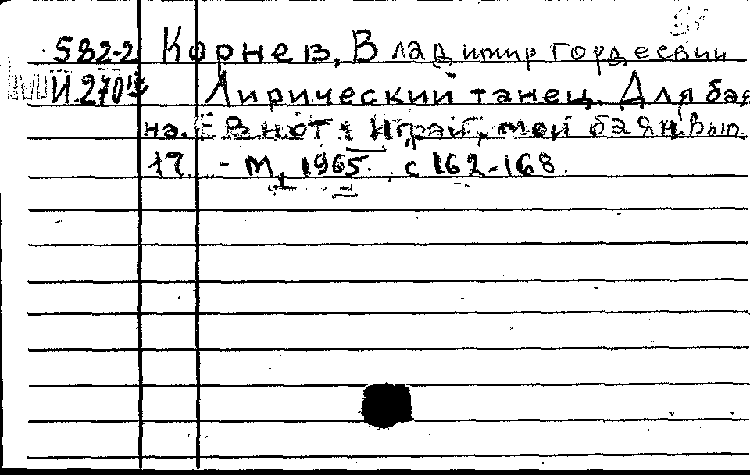 582-2 Корнев, Владимир Гордеевич
И 270 Лирический танец. Для бая
на. Е В нот: Играй, мой баян. Вып.
17. - М, 1965. с 162-168.